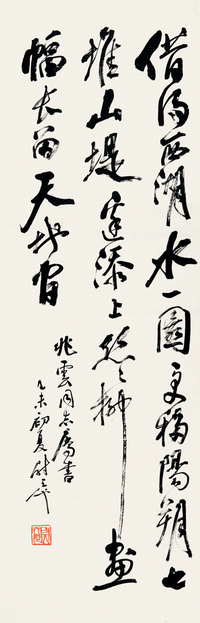 借得西湖水一圜更移陽朔七
堆山堤邊添上絲絲柳畫
幅長留天地間
兆雲同志屬書
乙未初夏尉